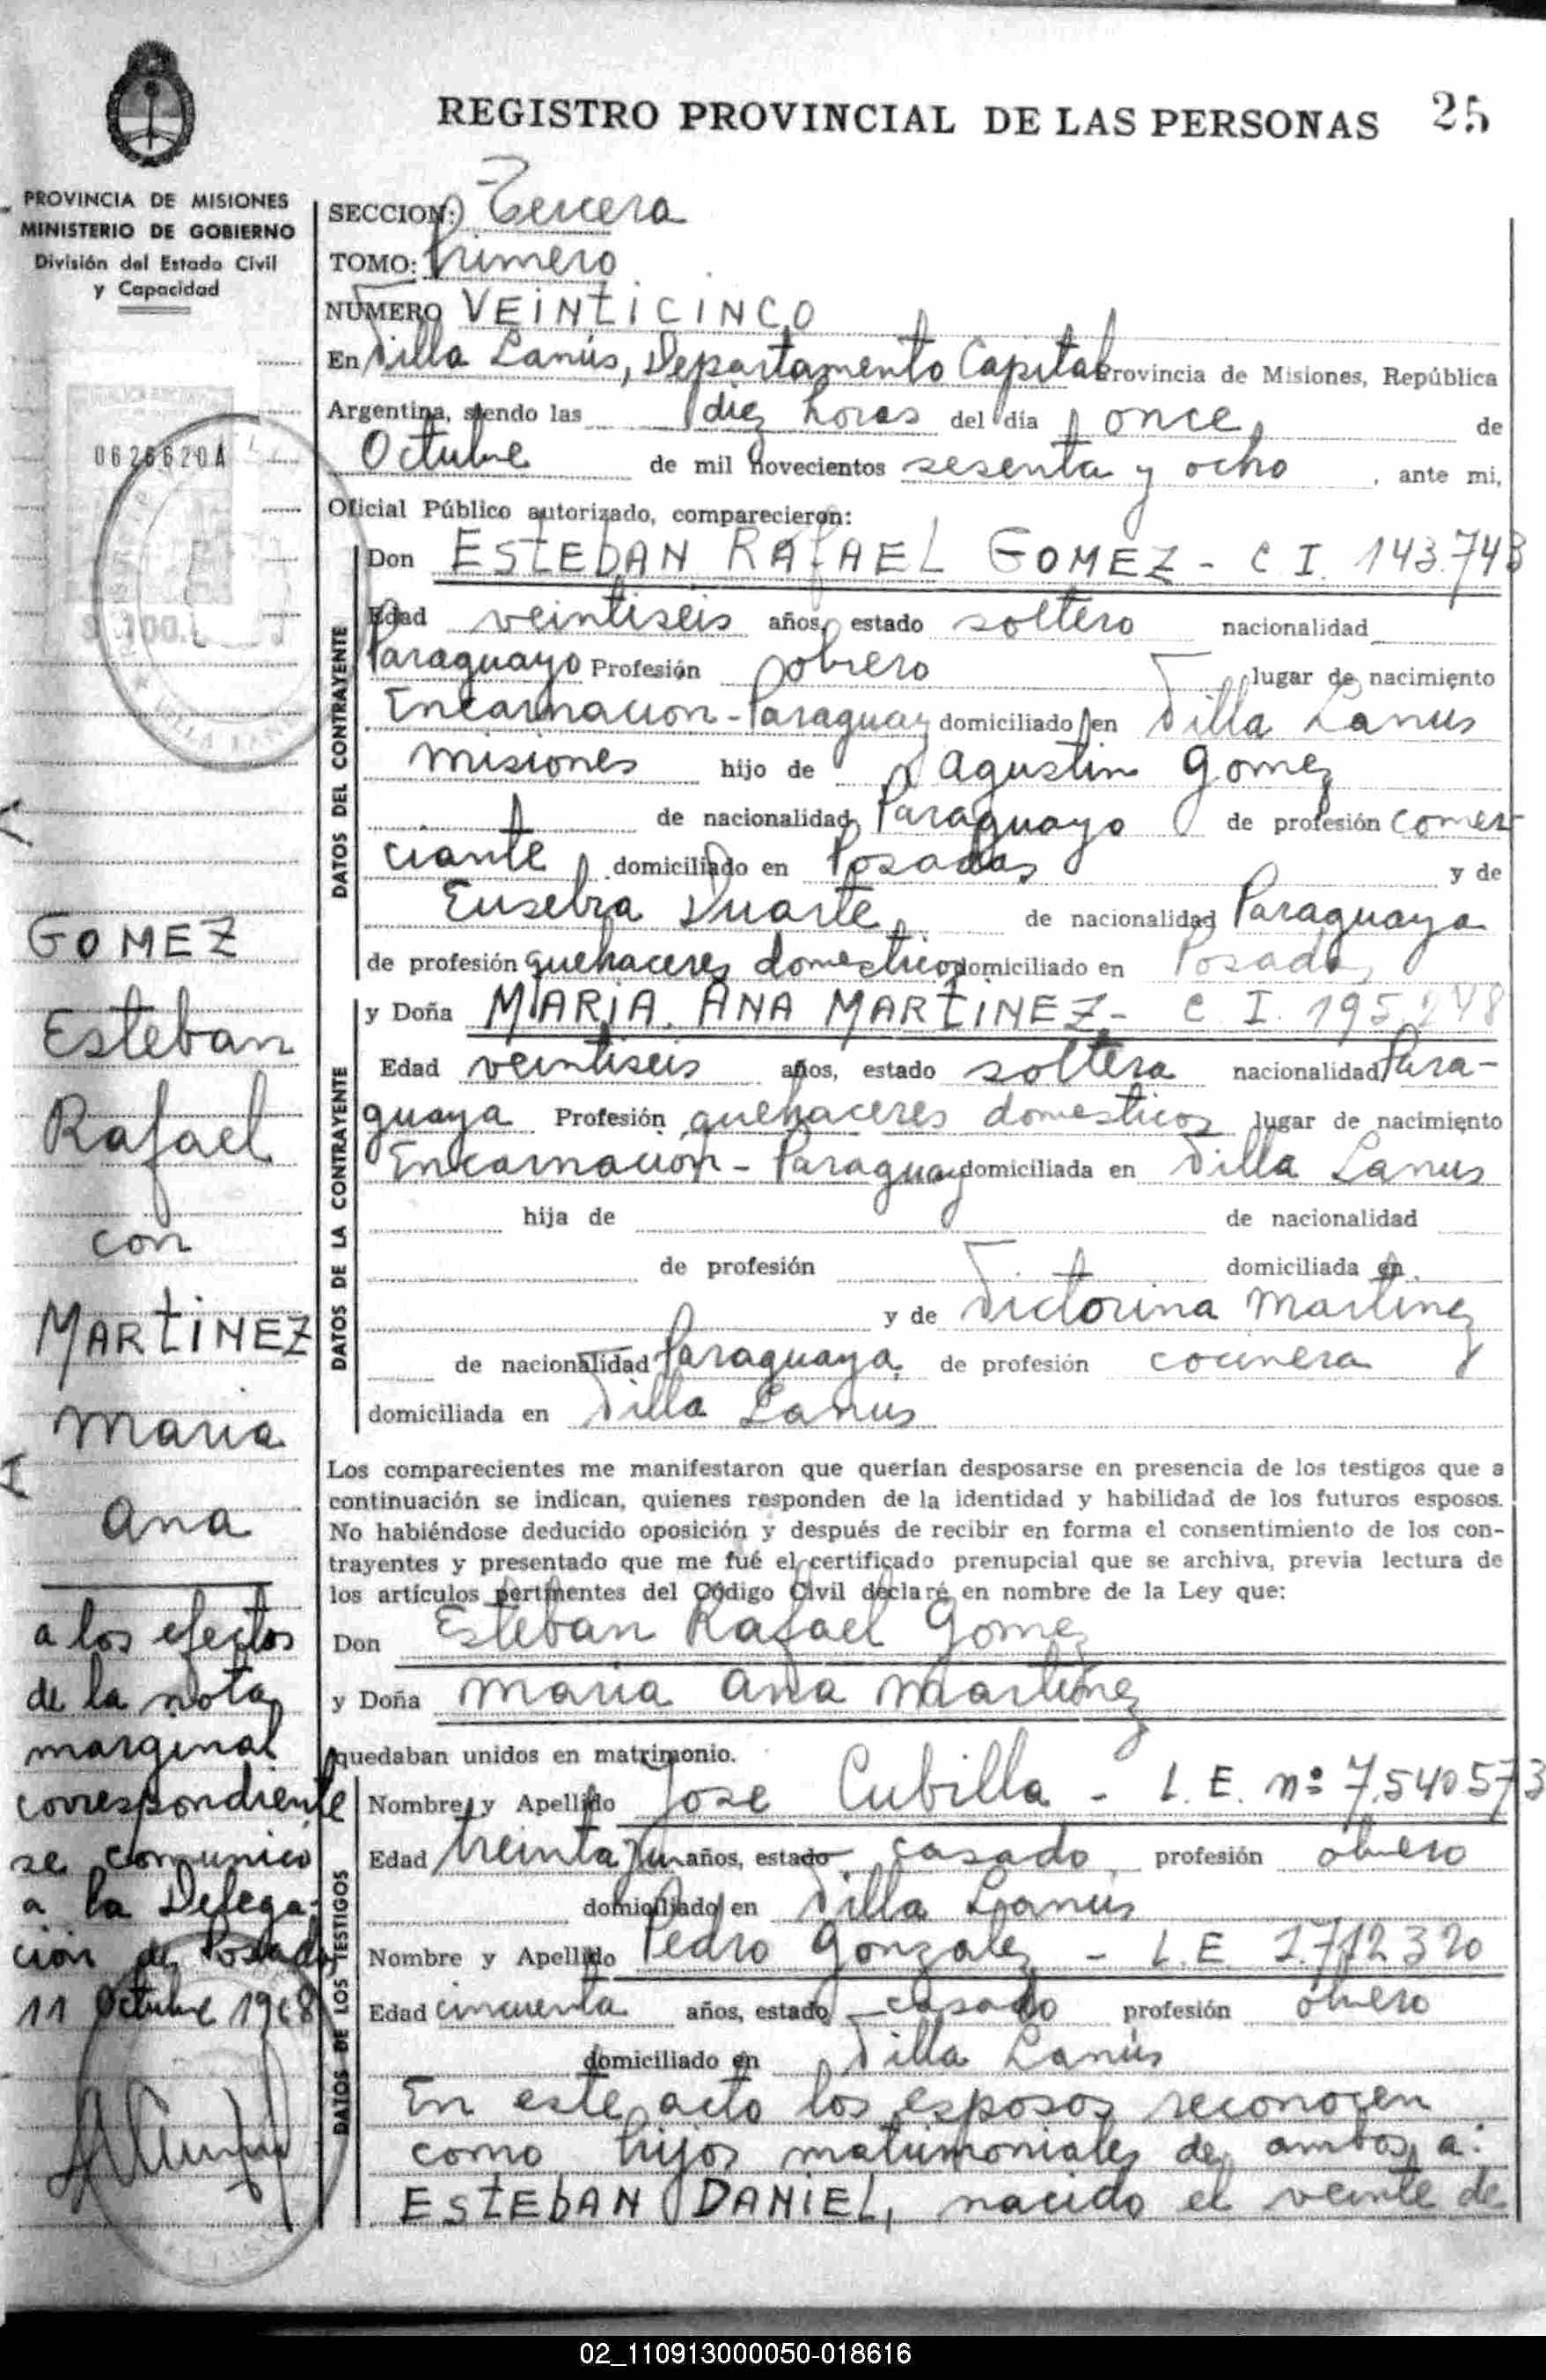 REGISTRO PROVINCIAL DE LAS PERSONAS 25
PROVINCIA DE MISIONES
MINISTERIO DE GOBIERNO
División del Estado Civil
y Capacidad
0626620A
VILLA LANUS
GOMEZ
Esteban
Rafael
con
MARTINEZ
Maria
Ana
a los efectos
de la nota
marginal
correspondiente
se comunico
a la Delega-
ción de Posadas
11 Octubre 1968
SECCION: Tercera
TOMO: Primero
NUMERO VEINTICINCO
En Villa Lanús, Departamento Capital Provincia de Misiones, República
Argentina, siendo las diez horas del día once de
Octubre de mil novecientos sesenta y ocho, ante mi,
Oficial Público autorizado, comparecieron:
DATOS DEL CONTRAYENTE
Don ESTEBAN RAFAEL GOMEZ - C I. 143.743
Edad veintiseis años, estado soltero nacionalidad
Paraguayo Profesión obrero lugar de nacimiento
Encarnacion - Paraguay domiciliado en Villa Lanus
Misiones hijo de Agustin Gomez
de nacionalidad Paraguayo de profesión comer
ciante domiciliado en Posadas y de
Eusebia Duarte de nacionalidad Paraguaya
de profesión quehaceres domesticos domiciliado en Posadas
DATOS DE LA CONTRAYENTE
y Doña MARIA ANA MARTINEZ - C I. 195.248
Edad veintiseis años, estado soltera nacionalidad Para-
guaya Profesión quehaceres domesticos lugar de nacimiento
Encarnacion - Paraguay domiciliada en Villa Lanus
hija de de nacionalidad
de profesión domiciliada en
y de Victorina Martinez
de nacionalidad Paraguaya de profesión cocinera
domiciliada en Villa Lanus
Los comparecientes me manifestaron que querían desposarse en presencia de los testigos que a
continuación se indican, quienes responden de la identidad y habilidad de los futuros esposos.
No habiéndose deducido oposición y después de recibir en forma el consentimiento de los con-
trayentes y presentado que me fué el certificado prenupcial que se archiva, previa lectura de
los artículos pertinentes del Código Civil declaré en nombre de la Ley que:
Don Esteban Rafael Gomez
y Doña Maria Ana Martinez
quedaban unidos en matrimonio.
DATOS DE LOS TESTIGOS
Nombre y Apellido Jose Cubilla - L. E. nº 7.540573
Edad treinta y un años, estado casado profesión obrero
domiciliado en Villa Lanús
Nombre y Apellido Pedro Gonzalez - L.E. 1.712320
Edad cincuenta años, estado casado profesión obrero
domiciliado en Villa Lanús
En este acto los esposos reconocen
como hijos matrimoniales de ambos a:
ESTEBAN DANIEL, nacido el veinte de
02_110913000050-018616